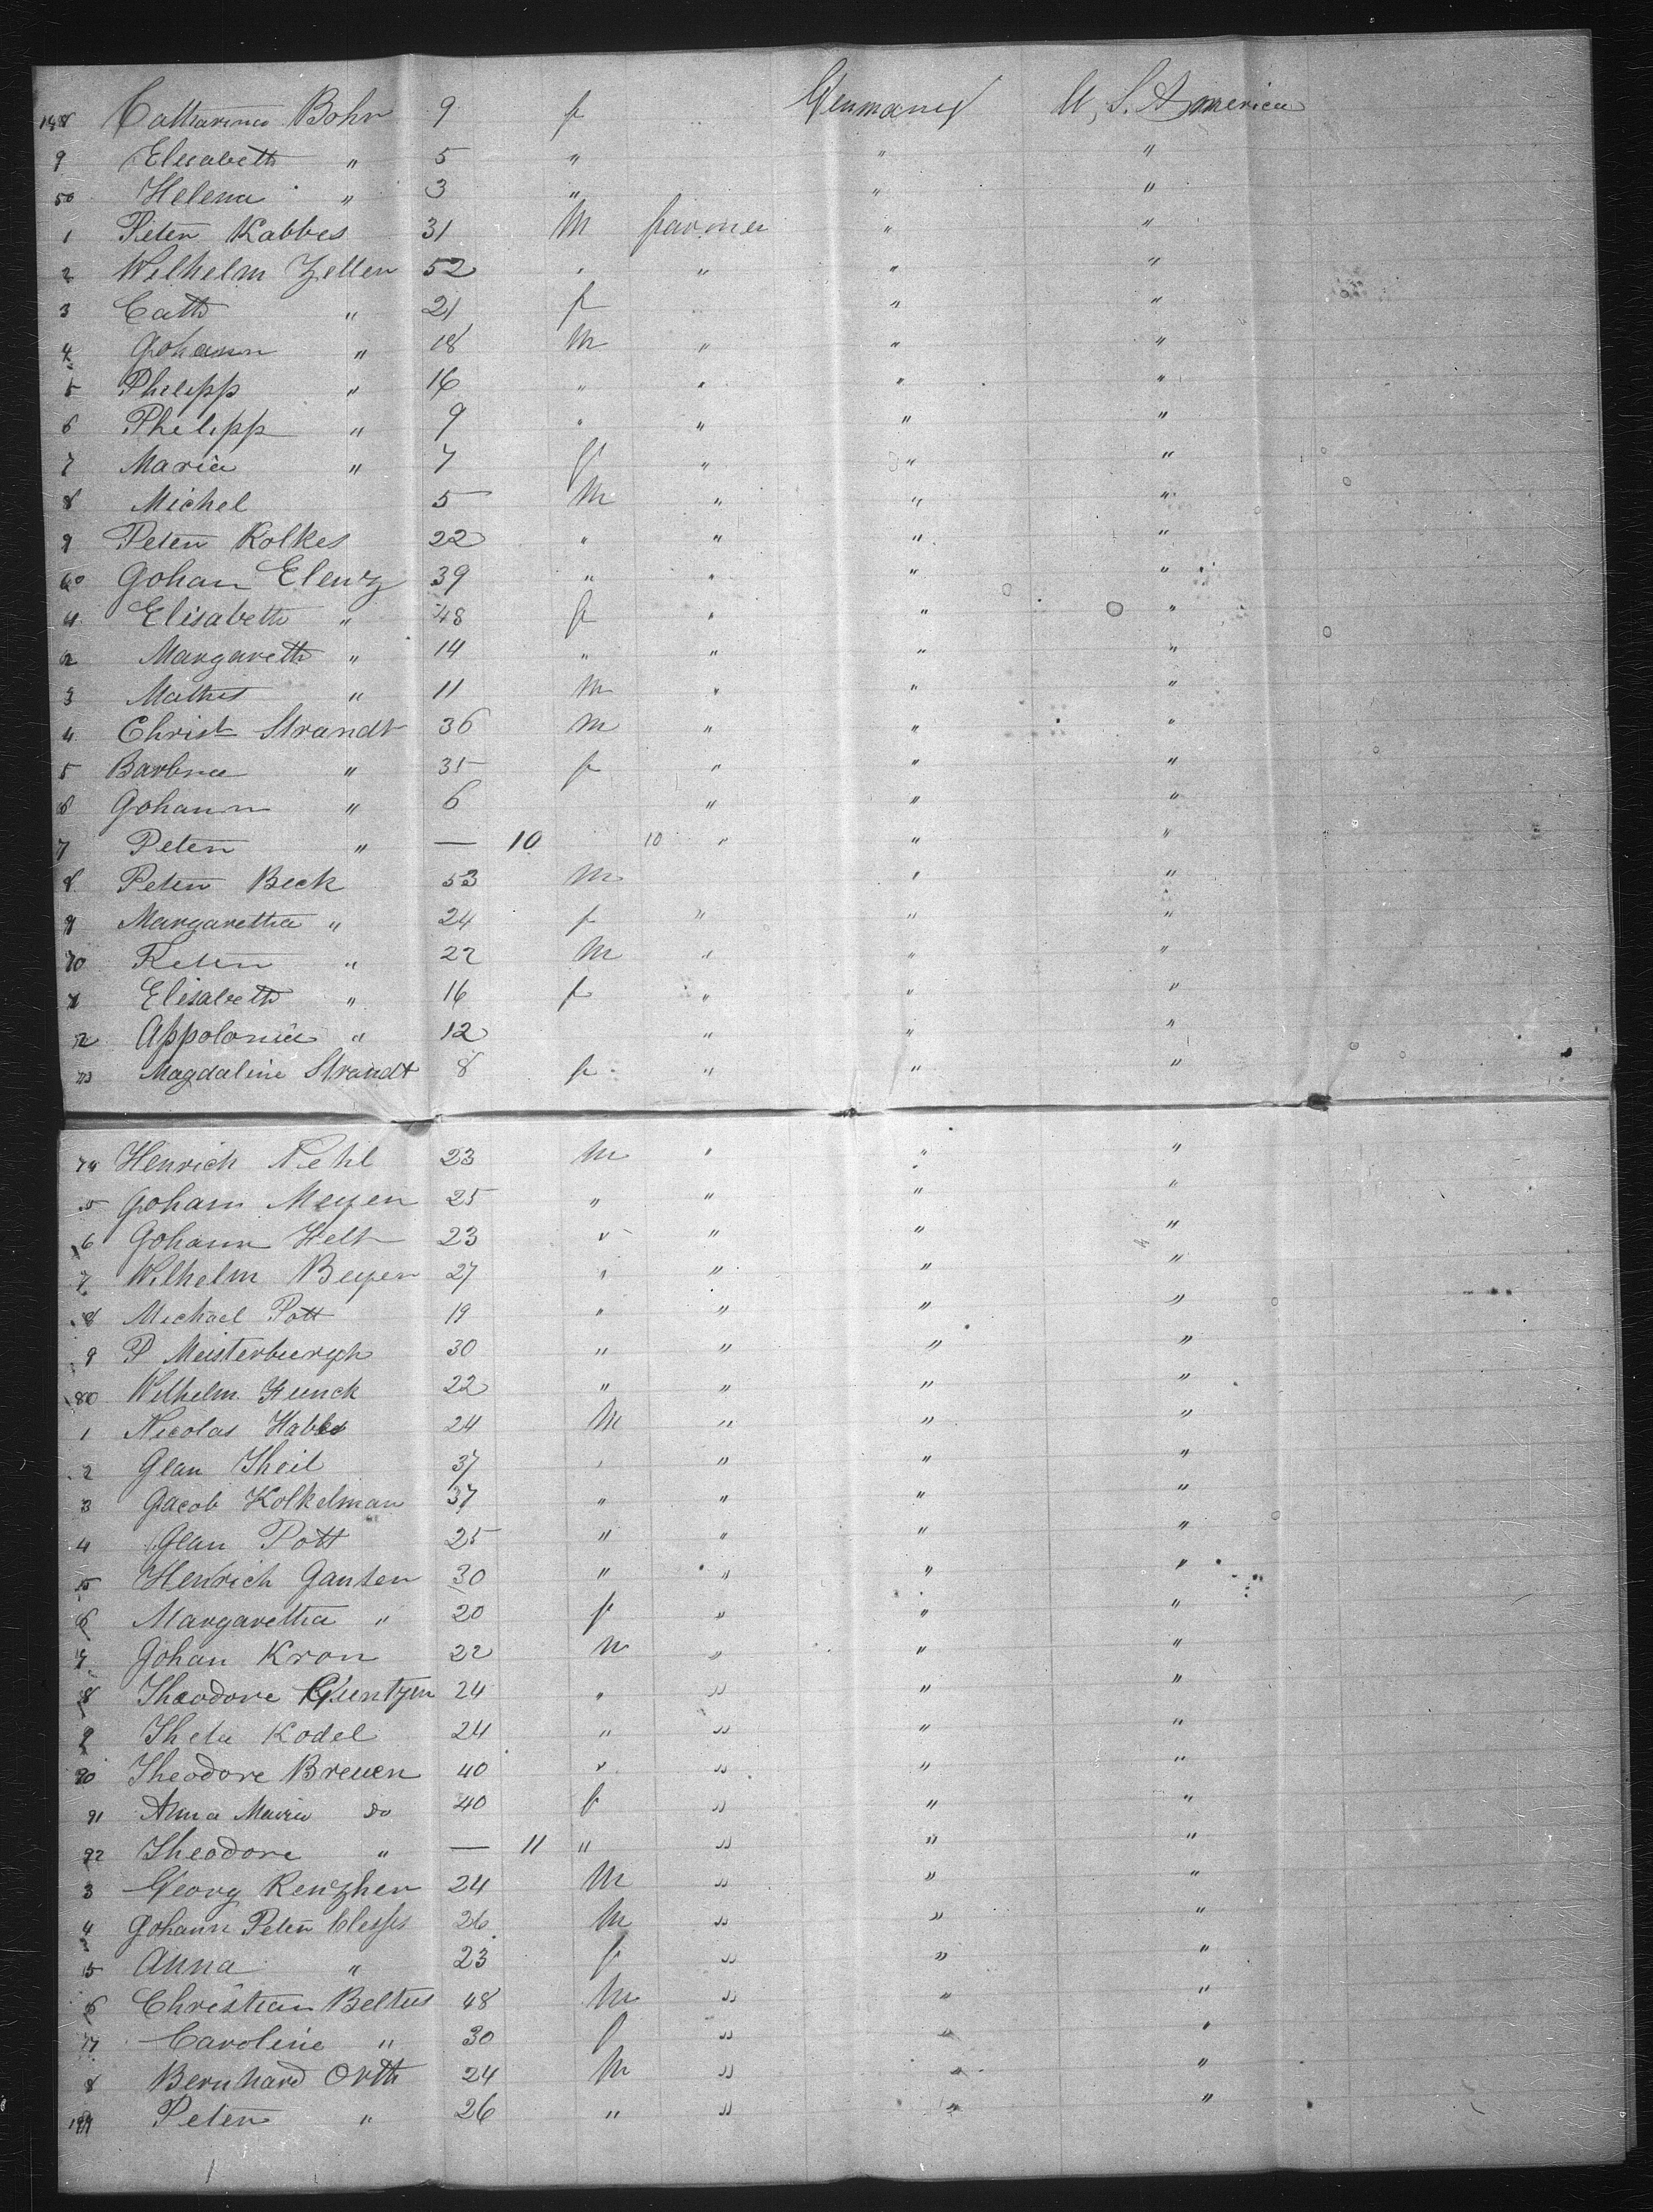 148 Catharina Bohr 9 f Germany U, S. America
9 Elisabeth " 5 " " "
50 Helena " 3 " " "
1 Peter Kabbes 31 M farmer " "
2 Wilhelm Zeller 52 " " " "
3 Cath " 21 f " "
4 Johann " 18 M " " "
5 Philipp " 16 " " " "
6 Philipp " 9 " " " "
7 Maria " 7 f " " "
8 Michel 5 M " " "
9 Peter Kolkes 22 " " " "
60 Johan Elenz 39 " " " "
61 Elisabeth " 48 f " " "
62 Margareth " 14 " " " "
3 Mathis " 11 M " " "
4 Christ Strandt 36 M " " "
5 Barbna " 35 f " " "
6 Johann " 6 " " "
7 Peter " — 10 10 " " "
8 Peter Beck 53 M " "
9 Margaretha " 24 f " " "
70 Peter " 22 M " " "
71 Elisabeth " 16 f " " "
72 Appolonia " 12 " " "
73 Magdaline Strandt 8 f " " "
74 Henrich Nehl 23 M " " "
5 Johann Meyer 25 " " " "
6 Johann Helt 23 " " " "
7 Wilhelm Beyer 27 " " " "
8 Michael Pott 19 " " " "
9 P Meisterburgh 30 " " " "
80 Wilhelm Hunck 22 " " " "
1 Nicolas Habbes 24 M " " "
2 Jean Theil 37 " " " "
3 Jacob Kolkelman 37 " " " "
4 Jean Pott 25 " " " "
5 Henrich Jansen 30 " " " "
6 Margaretha " 20 f " " "
7 Johan Kron 22 M " " "
8 Theodore Guntzen 24 " " " "
9 Kodel 24 " " " "
90 Theodore Breuer 40 " " " "
91 Anna Maria do 40 f " " "
92 Theodore " — 11 " " " "
3 Georg Renzher 24 M " " "
4 Johann Peter 26 M " " "
5 Anna " 23 f " " "
6 Christian Beltus 48 M " " "
97 Caroline " 30 f " " "
8 Bernhard Orth 24 M " " "
199 Peter " 26 " " " "